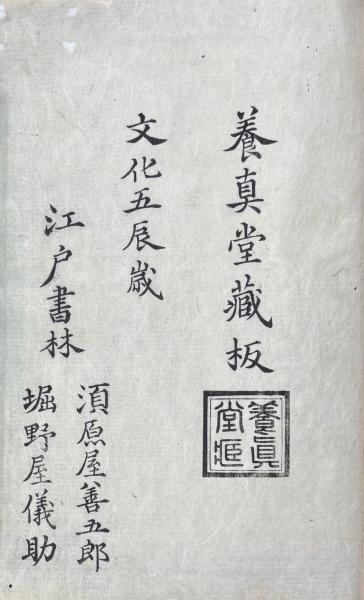 養真堂藏板
養眞
堂
文化五辰歳
江戸書林
須原屋善五郎
堀野屋儀助